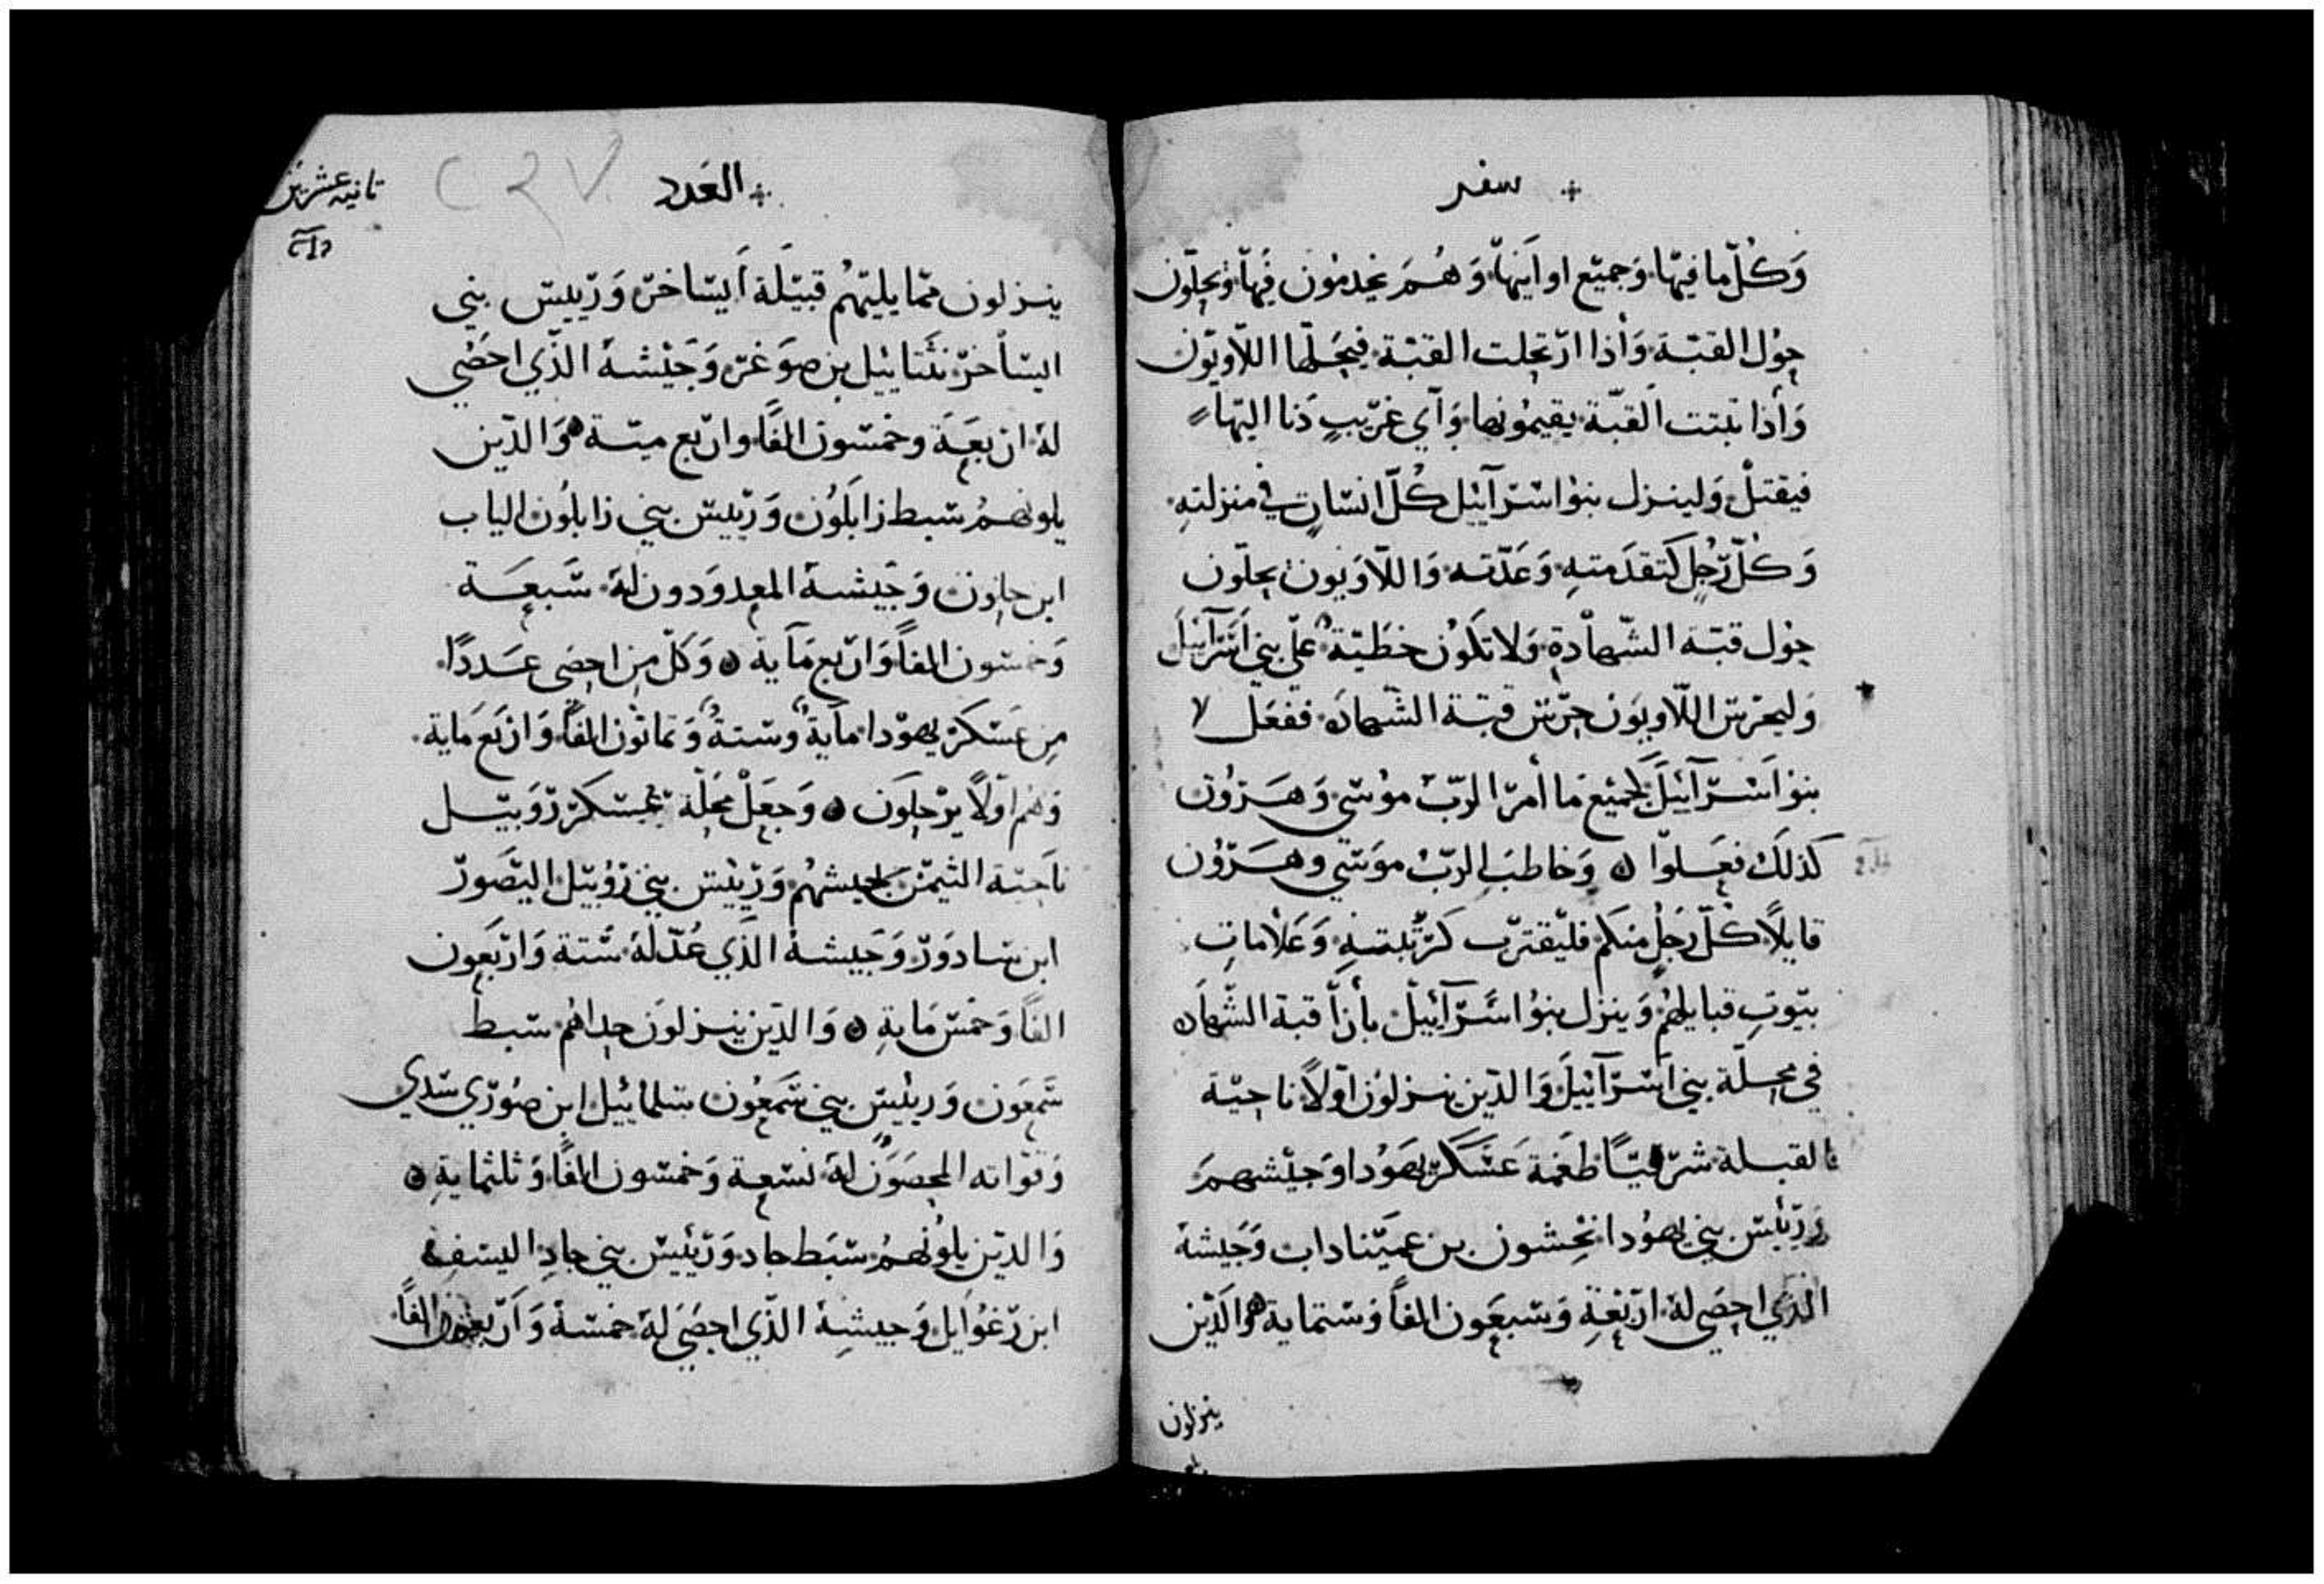 سفر
وَكُلّ ما فيها وَجميع اوانيها وَهُم يخدمُون فيها وَيحلّون
حوْل القبّة وَاذا ارتحلت القبّة فيحملها اللاّويّون
وَأذا ثبتت القبّة يقيمُونها وَاي غريبٍ دَنا اليها
فيقتلْ وَلينزل بنوْا اسْرآئيل كُلّ انسانٍ في منزلتهِ
وَكلّ رَجُلٍ كتقدَمتهِ وَعَدّته وَاللاّوَيون يحلّون
حوْل قبّة الشهادة وَلا تكوُن خطَيّة علي بني اسرآئيل
وَليحرس اللاّويوَن حرس قبّة الشهاده ففعَل
بنوْا اسْرآئيلَ كجميع مَا أمرَ الربّ موْسَي وَهَرُون
كذلكَ فعَلوا وَخاطبَ الربّ موَسَي وهَرُون
قايلاً كلّ رَجُلٍ منكم فليقترب كرتبتهِ وَعَلامات
بيُوتِ قبايلهُم وَينزل بنوُا اسَرآئيل بأزآ قبة الشهاده
في محلّة بني اسْرآئيلَ وَالذين ينزلوُن اوّلاً ناحيّة
القبلة شرقيّاً طغمَة عَسْكر يهوُدا وَجيْشهمَ
وَرئيس بني يهوُدا نحشون بن عميّناداب وَجَيشهُ
الذي احصَي لهَ ارَبعَةِ وَسبعَون الفاً وَستماية وَالذين
ينزلون
العَدد
ثانيه عشرين
٢٩٧
ينزلون ممّا يليهُم قبيَلة ايسَاخر وَرئيس بني
ايسَاخر نثنائيل بن صوَغر وَجَيْشهُ الذي احصْي
لهُ اربعَة وخمسون الفاً واربع ميّة وَالذين
يلونهُم سبط زابلوُن وَرئيس بني زابلوُن الياب
ابن حلون وَجَيشهُ المعدوَدون لهُ سَبعَة
وَخمسون الفاً وَاربع مَاية وَكلّ مِن احصَى عَددًا
مِن عَسْكر يهوْدا مايةُ وستةُ وَثمانون الفاً وَاربَع مَاية
وَهُم اوّلاً يرْحلوَن وَجعَلْ محلّة عَسكَر رَوَبيل
ناحيَة التيمَن بجيشهُم وَرئيس بني رَوُبيل اليصَورْ
ابن سادوَر وَجَيشهُ الذي عُدّ لهَ ستة وَاربَعَون
الفاً وَخمسْ مَايةِ وَالذين ينزلون حداهُم سبط
شَمعَون وَرئيس بني شَمعُون سلمائيل ابن صوُرْي سدي
وَقوّاته المحصَوَن لهَ تسْعة وَخمسون الفاً وَثلثمايةِ
وَالذين يلوُنهُم سبَط جاد وَرئيس بني جادِ اليسَفه
ابن رَغوُايل وَجيشهِ الذي احصَي لهَ خمسَة وَاربعون الفاً